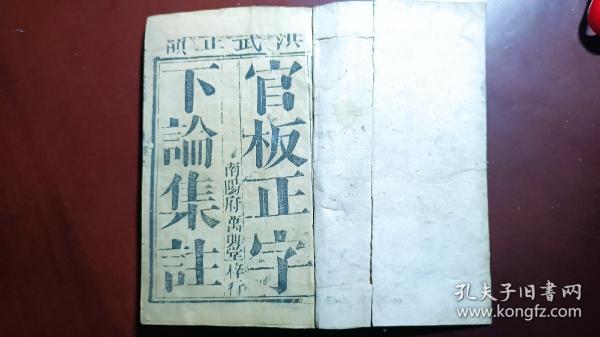 洪武正韻
官板正字
南陽府萬興堂梓行
下論集註
孔夫子旧書网
www.kongfz.com